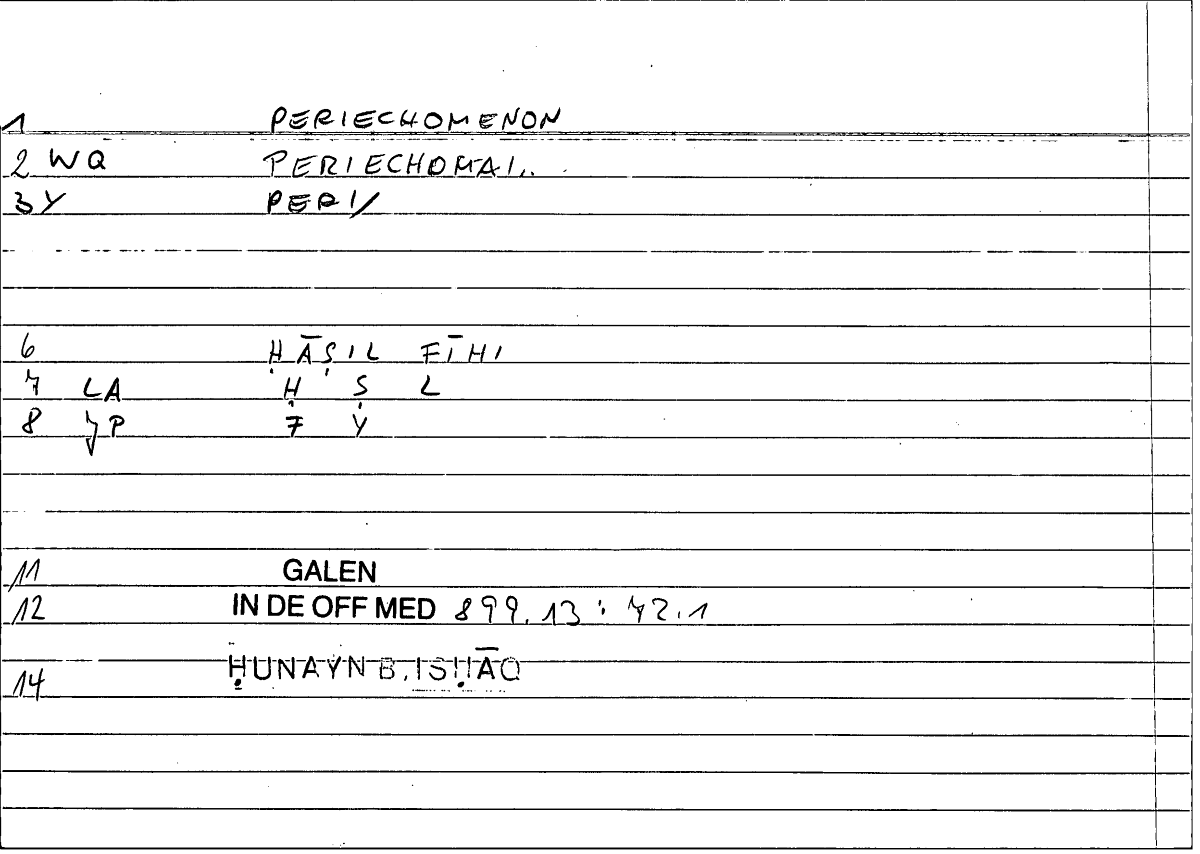 1 PERIECHOMENON
2 WQ PERIECHOMAI..
3 Y PERI/
6 ḤĀṢIL FĪHI
7 LA Ḥ Ṣ L
8 P 7 Y
11 GALEN
12 IN DE OFF MED 899.13 : 72.1
14 ḤUNAYN B. ISḤĀQ